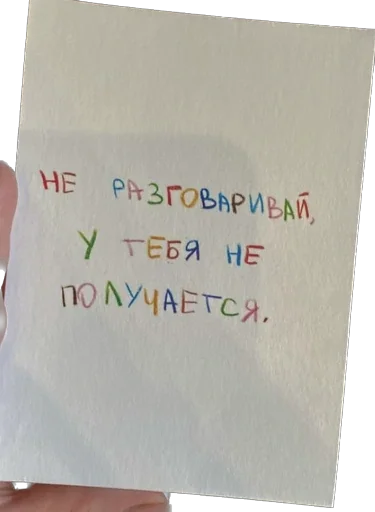 НЕ РАЗГОВАРИВАЙ,
У ТЕБЯ НЕ
ПОЛУЧАЕТСЯ.